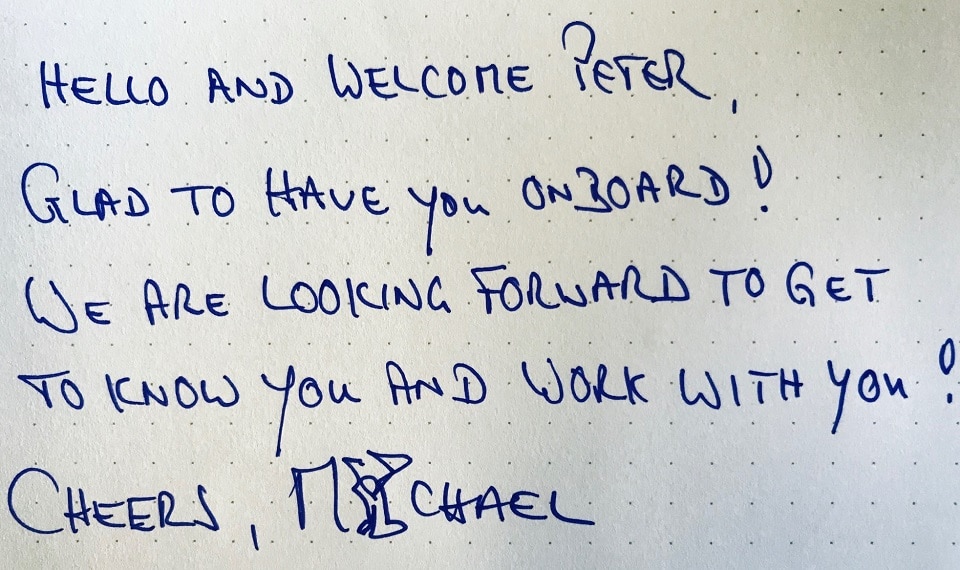 HELLO AND WELCOME PETER,
GLAD TO HAVE you ONBOARD!
WE ARE LOOKING FORWARD TO GET
TO KNOW you AND WORK WITH you!
CHEERS, MICHAEL